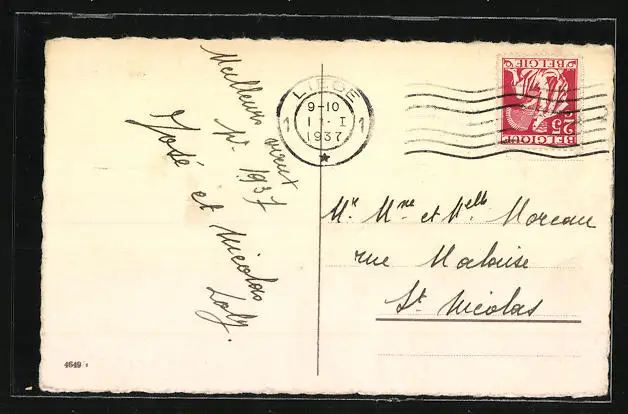 Meilleurs vœux
Pr 1937
José et Nicolas
Loly.
LIEGE
1 1
9-10
I - I
1937
BELGIE
25
BELGIQUE
Mr Mme et Melle Moreau
rue Malaise
St Nicolas
4649